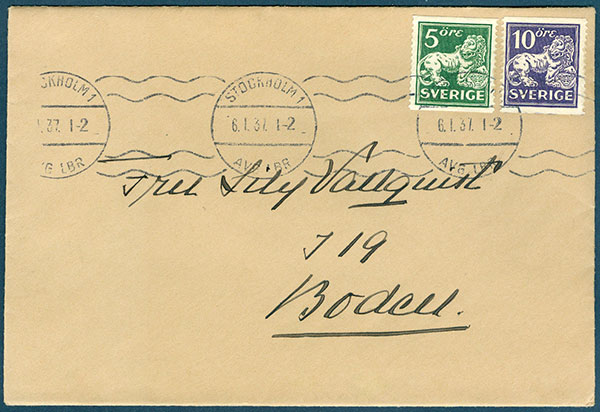 5 öre
SVERIGE
10 öre
SVERIGE
OCKHOLM 1
.1.37. 1-2
AVG LBR
STOCKHOLM 1
6.1.37. 1-2
AVG LBR
6.1.37. 1-2
AVG LBR
Fru Lily Vallquist
I 19
Boden.